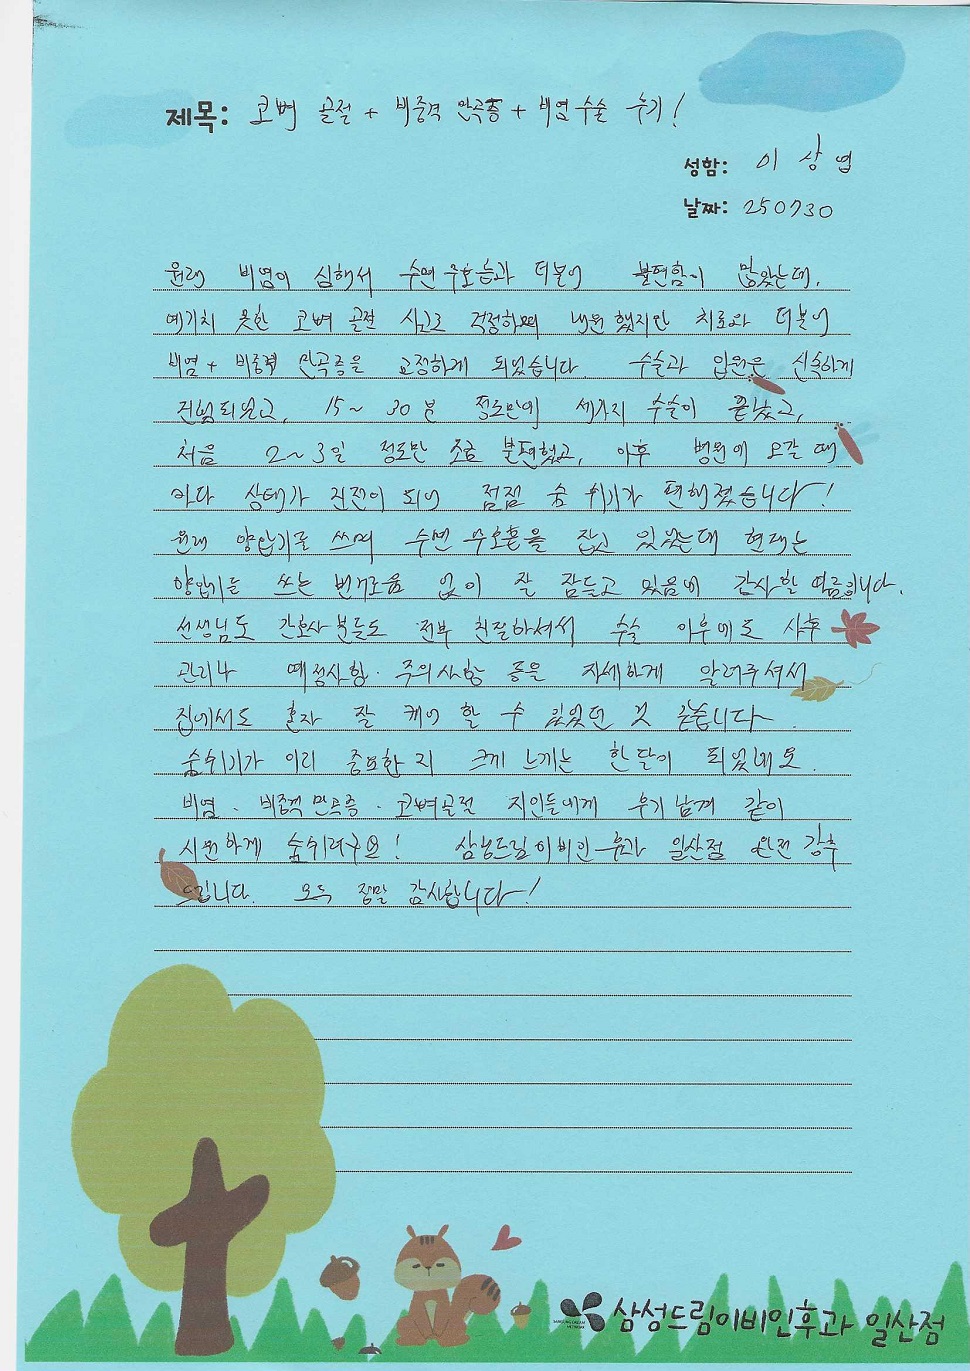 제목: 코뼈 골절 + 비중격 만곡증 + 비염 수술 후기!
성함: 이상엽
날짜: 250730
원래 비염이 심해서 수면 무호흡과 더불어 불편함이 많았는데,
예기치 못한 코뼈 골절 으로 걱정하며 내원 했지만 치료와 더불어
비염 + 비중격 만곡증을 교정하게 되었습니다. 수술과 입원은 신속하게
진행되었고, 15~30분 정도만에 세가지 수술이 끝났고,
처음 2~3일 정도만 조금 불편했고, 이후 병원에 오갈 때
마다 상태가 진전이 되어 점점 숨 쉬기가 편해졌습니다!
원래 양압기를 쓰며 수면 무호흡을 잡고 있었는데 현재는
양압기를 쓰는 번거로움 없이 잘 잠들고 있음에 감사할 따름입니다.
선생님도 간호사 분들도 전부 친절하셔서 수술 이후에도 사후
관리나 예정사항·주의사항 등을 자세하게 알려주셔서
집에서도 혼자 잘 케어 할 수 있었던 것 같습니다.
숨쉬기가 이리 중요한 지 크게 느끼는 한달이 되었네요.
비염·비중격 만곡증·코뼈골절 지인들에게 후기 남겨 같이
시원하게 숨쉬려구요! 삼성드림이비인후과 일산점 완전 강추
드립니다. 모두 정말 감사합니다!
SAMSUNG DREAM NETWORK
삼성드림이비인후과 일산점